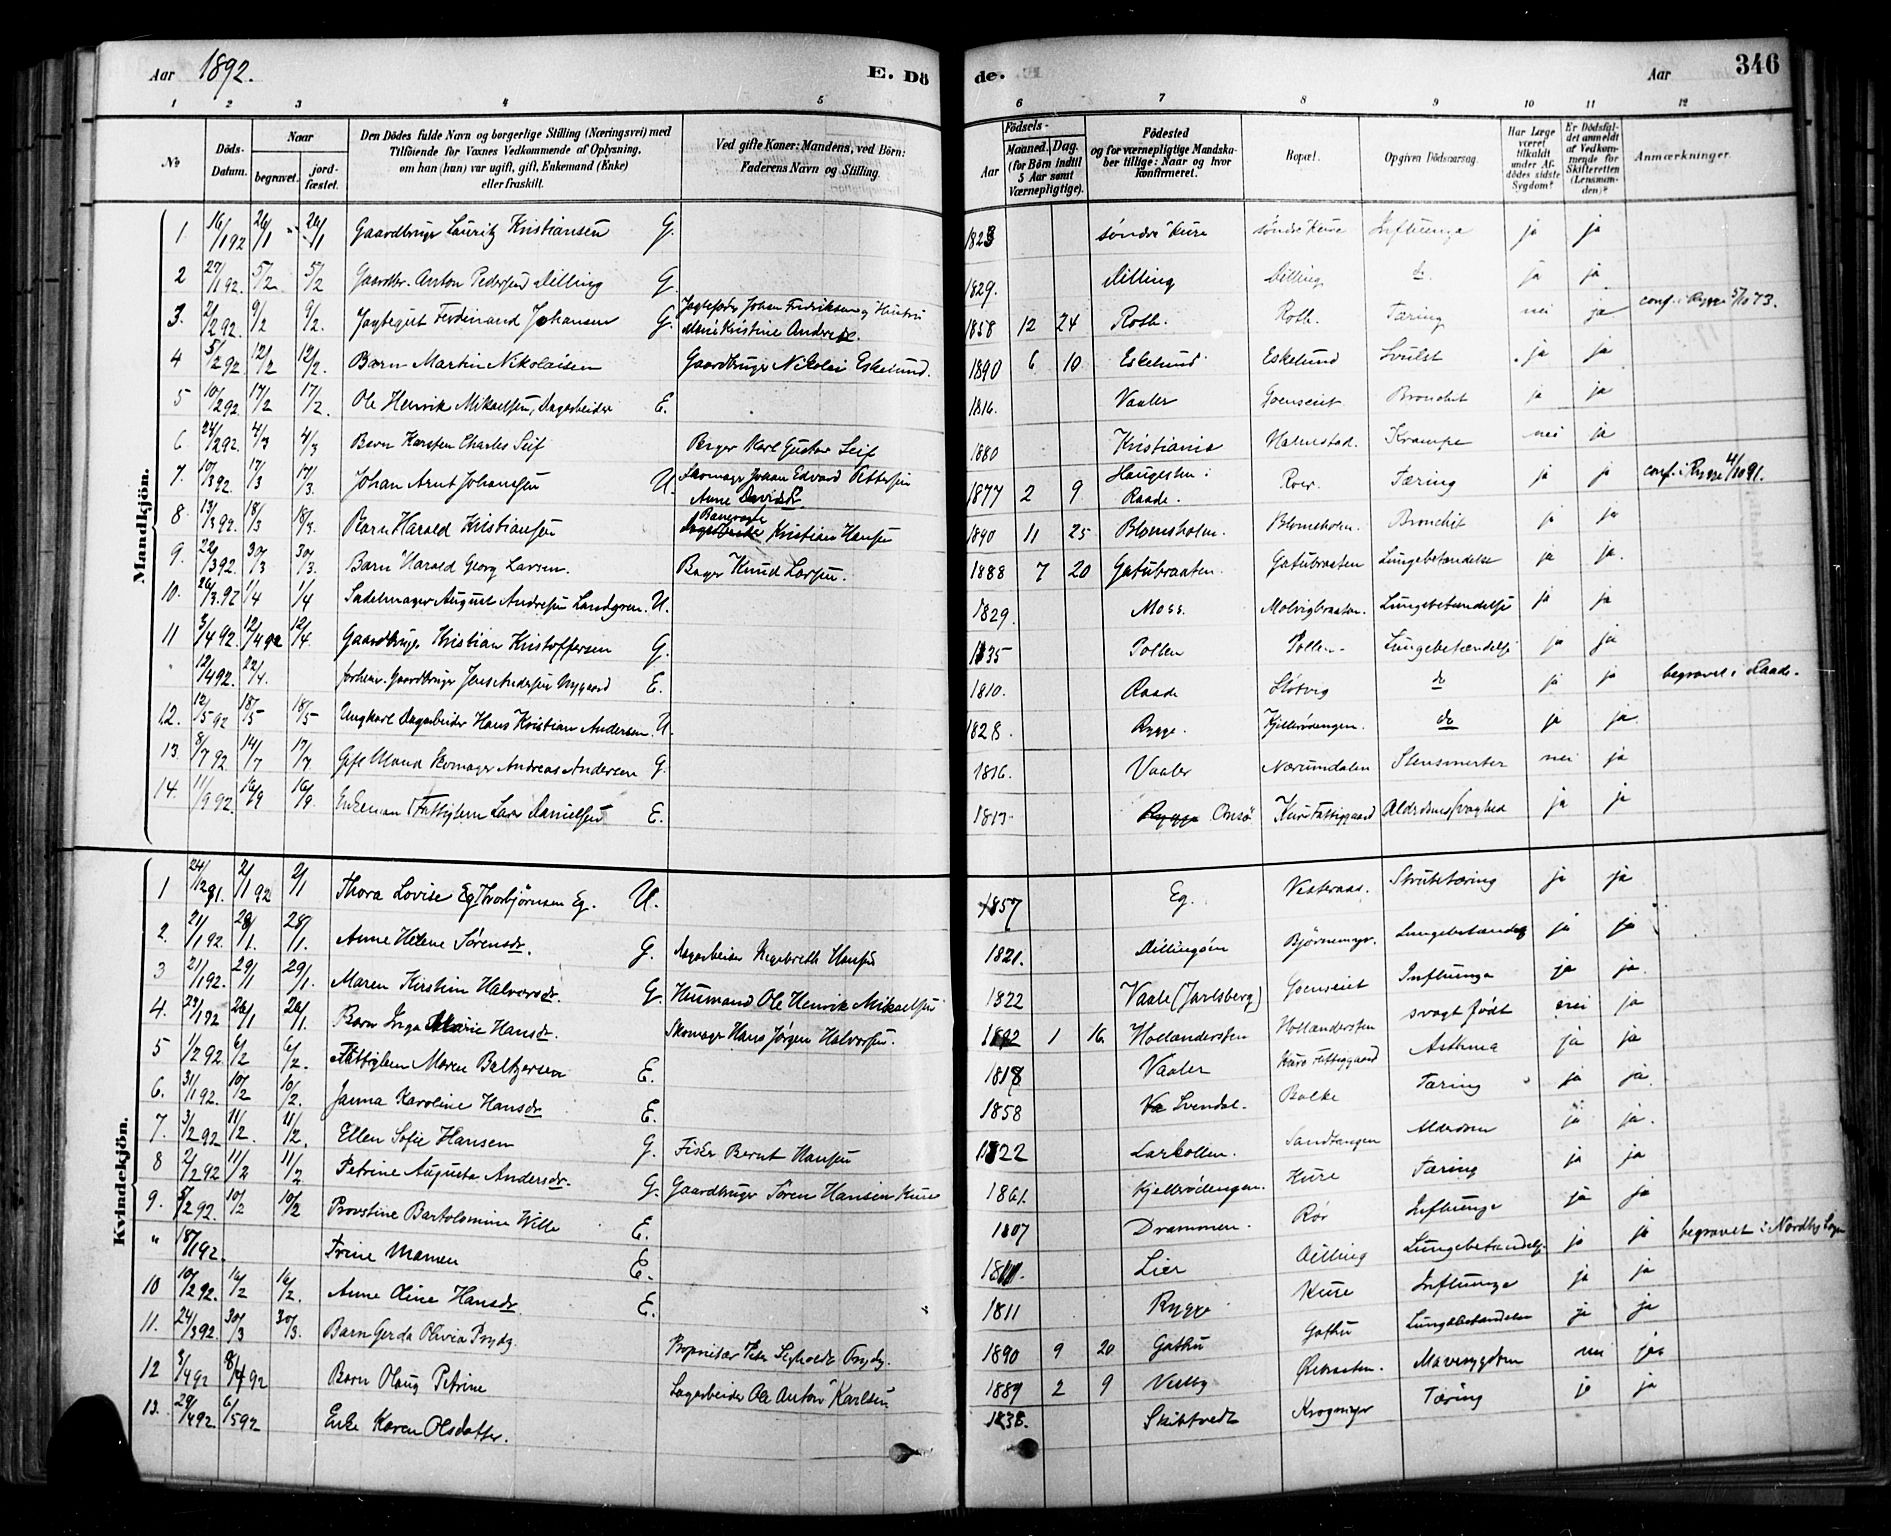 Aar 1892. E. Dö
de. Aar 346
1 2 3 4 5 6 7 8 9 10 11 12
No
Döds-Datum.
Naar
begravet.
jord-fæstet.
Den Dödes fulde Navn og borgerlige Stilling (Næringsvei) med
Tilföiende for Voxnes Vedkommende af Oplysning,
om han (hun) var ugift, gift, Enkemand (Enke)
eller fraskilt.
Ved gifte Koner: Mandens, ved Börn:
Faderens Navn og Stilling.
Födsels-
Aar
Maaned. Dag.
(for Börn indtil
5 Aar samt
Værnepligtige).
Födested
og for værnepligtige Mandska-
ber tillige: Naar og hvor
Konfirmeret.
Bopæl.
Opgiven Dödsaarsag.
Har Læge
været
tilkaldt
under Af-
dödes sidste
Sygdom?
Er Dödsfal-
det anmeldt
af Vedkom-
mende for
Skifteretten
(Lensman-
den)?
Anmærkninger.
Mandkjön.
1 16/1 92 26/1 26/1 Gaardbruger Lauritz Kristiansen G. 1823 søndre Kure søndre Kure Influenza ja ja
2 27/1 92. 5/2 5/2 Gaardbr. Anton Pedersen Dilling G. 1829. Dilling Dilling do. ja ja
3. 2/2 92. 9/2 9/2. Jagtegut Ferdinand Johansen G. Johan Fredriksen og Hustru Kristine 1858 12 24 Roth. Roth. Tæring nei ja conf. i Rygge 5/10 73.
4 5/2 92 12/2 12/2. Barn Martin Nikolaisen Gaardbruger Nikolai Eskelund. 1890 6 10 Eskelund Eskelund Svulst ja ja
5 10/2 92 17/2 17/2. Ole Henrik Mikaelsen, Dagarbeider E. 1816. Vaaler Goenseiet Bronchit ja ja
6 24/2 92. 4/3 4/3 Barn Karsten Charles Leif Karl Gustav Leif 1880 Kristiania Halmstad. Krampe nei ja
7. 10/3 92. 17/3 17/3. Johan Arnt Johansen U. Skomager Johan Edvard Pettersen Anne Davidsdr. 1877 2 9 Haugesten i Raade. Roer. Tæring ja ja conf. i Rygge 4/10 91.
8 13/3 92. 18/3 18/3. Barn Harald Kristiansen Kristian Hansen 1890 11 25 Blomsholm. Blomsholm. Bronchit ja ja
9. 22/3 92. 30/3 30/3. Barn Harald Georg Larsen. Bager Knud Larsen. 1888 7 20 Gatubraaten. Gatubraaten Lungebetændelse ja ja.
10. 26/3 92 1/4 1/4 Sadelmager August Andresen Landgren. U. 1829. Moss. Molvigbraaten. Lungebetændelse ja ja
11 3/4 92. 12/4 92 12/4. Gaardbruger Kristian Kristoffersen G. 1835 Pollen Pollen Lungebetændelse ja ja
" 12/4 92. 22/4. forhenv. Gaardbruger Jens Andersen Nygaard E. 1810. Raade Sløtvig do ja ja begravet i Raade.
12. 12/5 92 18/5 18/5 Ungkarl Dagarbeider Hans Kristian Andersen. U. 1828. Rygge. Kjellerødengen. do ja ja
13. 8/7 92 14/7 17/7 Gift Mand Skomager Andreas Andersen G. 1816. Vaaler Nærumdalen Stensmerter nei ja
14. 11/9 92. 16/9 16/9. Enkeman Fattiglem Lars Danielsen E. 1813 Rygge Onsø Kure Fattiggaard Alderdomssvaghed ja ja
Kvindekjön.
1 24/12 91. 2/1 92 2/1 Thora Lovise Eg Thorbjørnsen Eg. U. 1857 Eg. Vesteraas. Strubetæring ja ja
2. 21/1 92. 28/1. 28/1. Anne Helene Sørensdr. G. Dagarbeider Engebreth Hansen 1821. Dillingøen Bjørnemyr. Lungebetændelse ja ja
3 21/1 92. 29/1 29/1. Maren Kirstine Halvorsdr. G. Husmand Ole Henrik Mikaelsen 1822 Vaale (Jarlsberg) Goenseiet Influenza ja ja.
4. 23/1 92 26/1 26/1. Barn Inga Marie Hansdr. Skomager Hans Jørgen Halvorsen. 1892 1 16. Hollandersten Hollandersten svagt født nei ja
5 1/2 92 6/2 6/2. Fattiglem Maren Baltzersen E. 1818 Vaaler Kure Fattiggaard Asthma ja ja
6. 31/1 92. 10/2 10/2. Janna Karoline Hansdr E. 1858 Va Svendal. Bolke Tæring ja ja.
7. 3/2 92 11/2. 11/2. Ellen Sofie Hansen G. Fisker Bernt Hansen 1822 Larkollen. Sandtangen Alderdom ja ja.
8 2/2 92 11/2 11/2 Petrine Augusta Andersdr. G. Gaardbruger Søren Hansen Kure 1861. Kjellerødengen. Kure Tæring ja ja
9. 5/2 92. 10/2 10/2 Provstine Bartolomine Wille E. 1807 Drammen. Rør Influenza ja ja
" 18/1 92. Trine Mamen E. Lier Dilling Lungebetændelse ja ja begravet i Nordby Sogn
10 10/2 92. 16/2 16/2. Anne Oline Hansdr E. 1811 Rygge Kure Influenza ja ja
11. 24/3 92 30/3 30/3. Barn Gerda Olivia Prydz. Proprietær Peter Prydz. 1890 9 20 Gathu Gathu Lungebetændelse ja ja
12 3/4 92 8/4 92 Barn Olaug Petrine Dagarbeider Ole Anton Karlsen 1889 2 9 Vestby Mavesygdom nei jaa
13. 29/4 92 6/5 92 Enke Karen Olsdatter. 1838. Skibtvedt Krogmyr Tæring ja ja